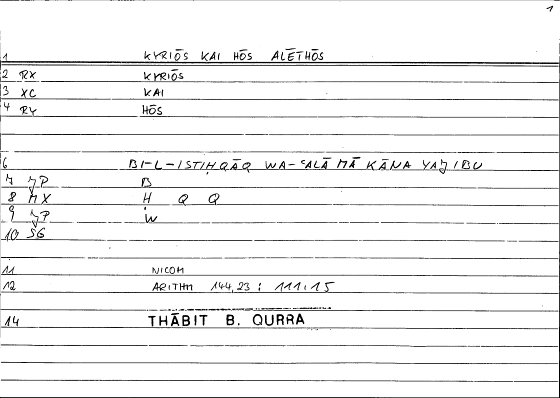 1
1 KYRIŌS KAI HŌS ALĒTHŌS
2 RX KYRIŌS
3 XC KAI
4 RY HŌS
6 BI-L-ISTIḤQĀQ WA-ʿALĀ MĀ KĀNA YAJIBU
7 JP B
8 MX Ḥ Q Q
9 JP W
10 SG
11 NICOM
12 ARITHM 144,23 : 111.15
14 THĀBIT B. QURRA